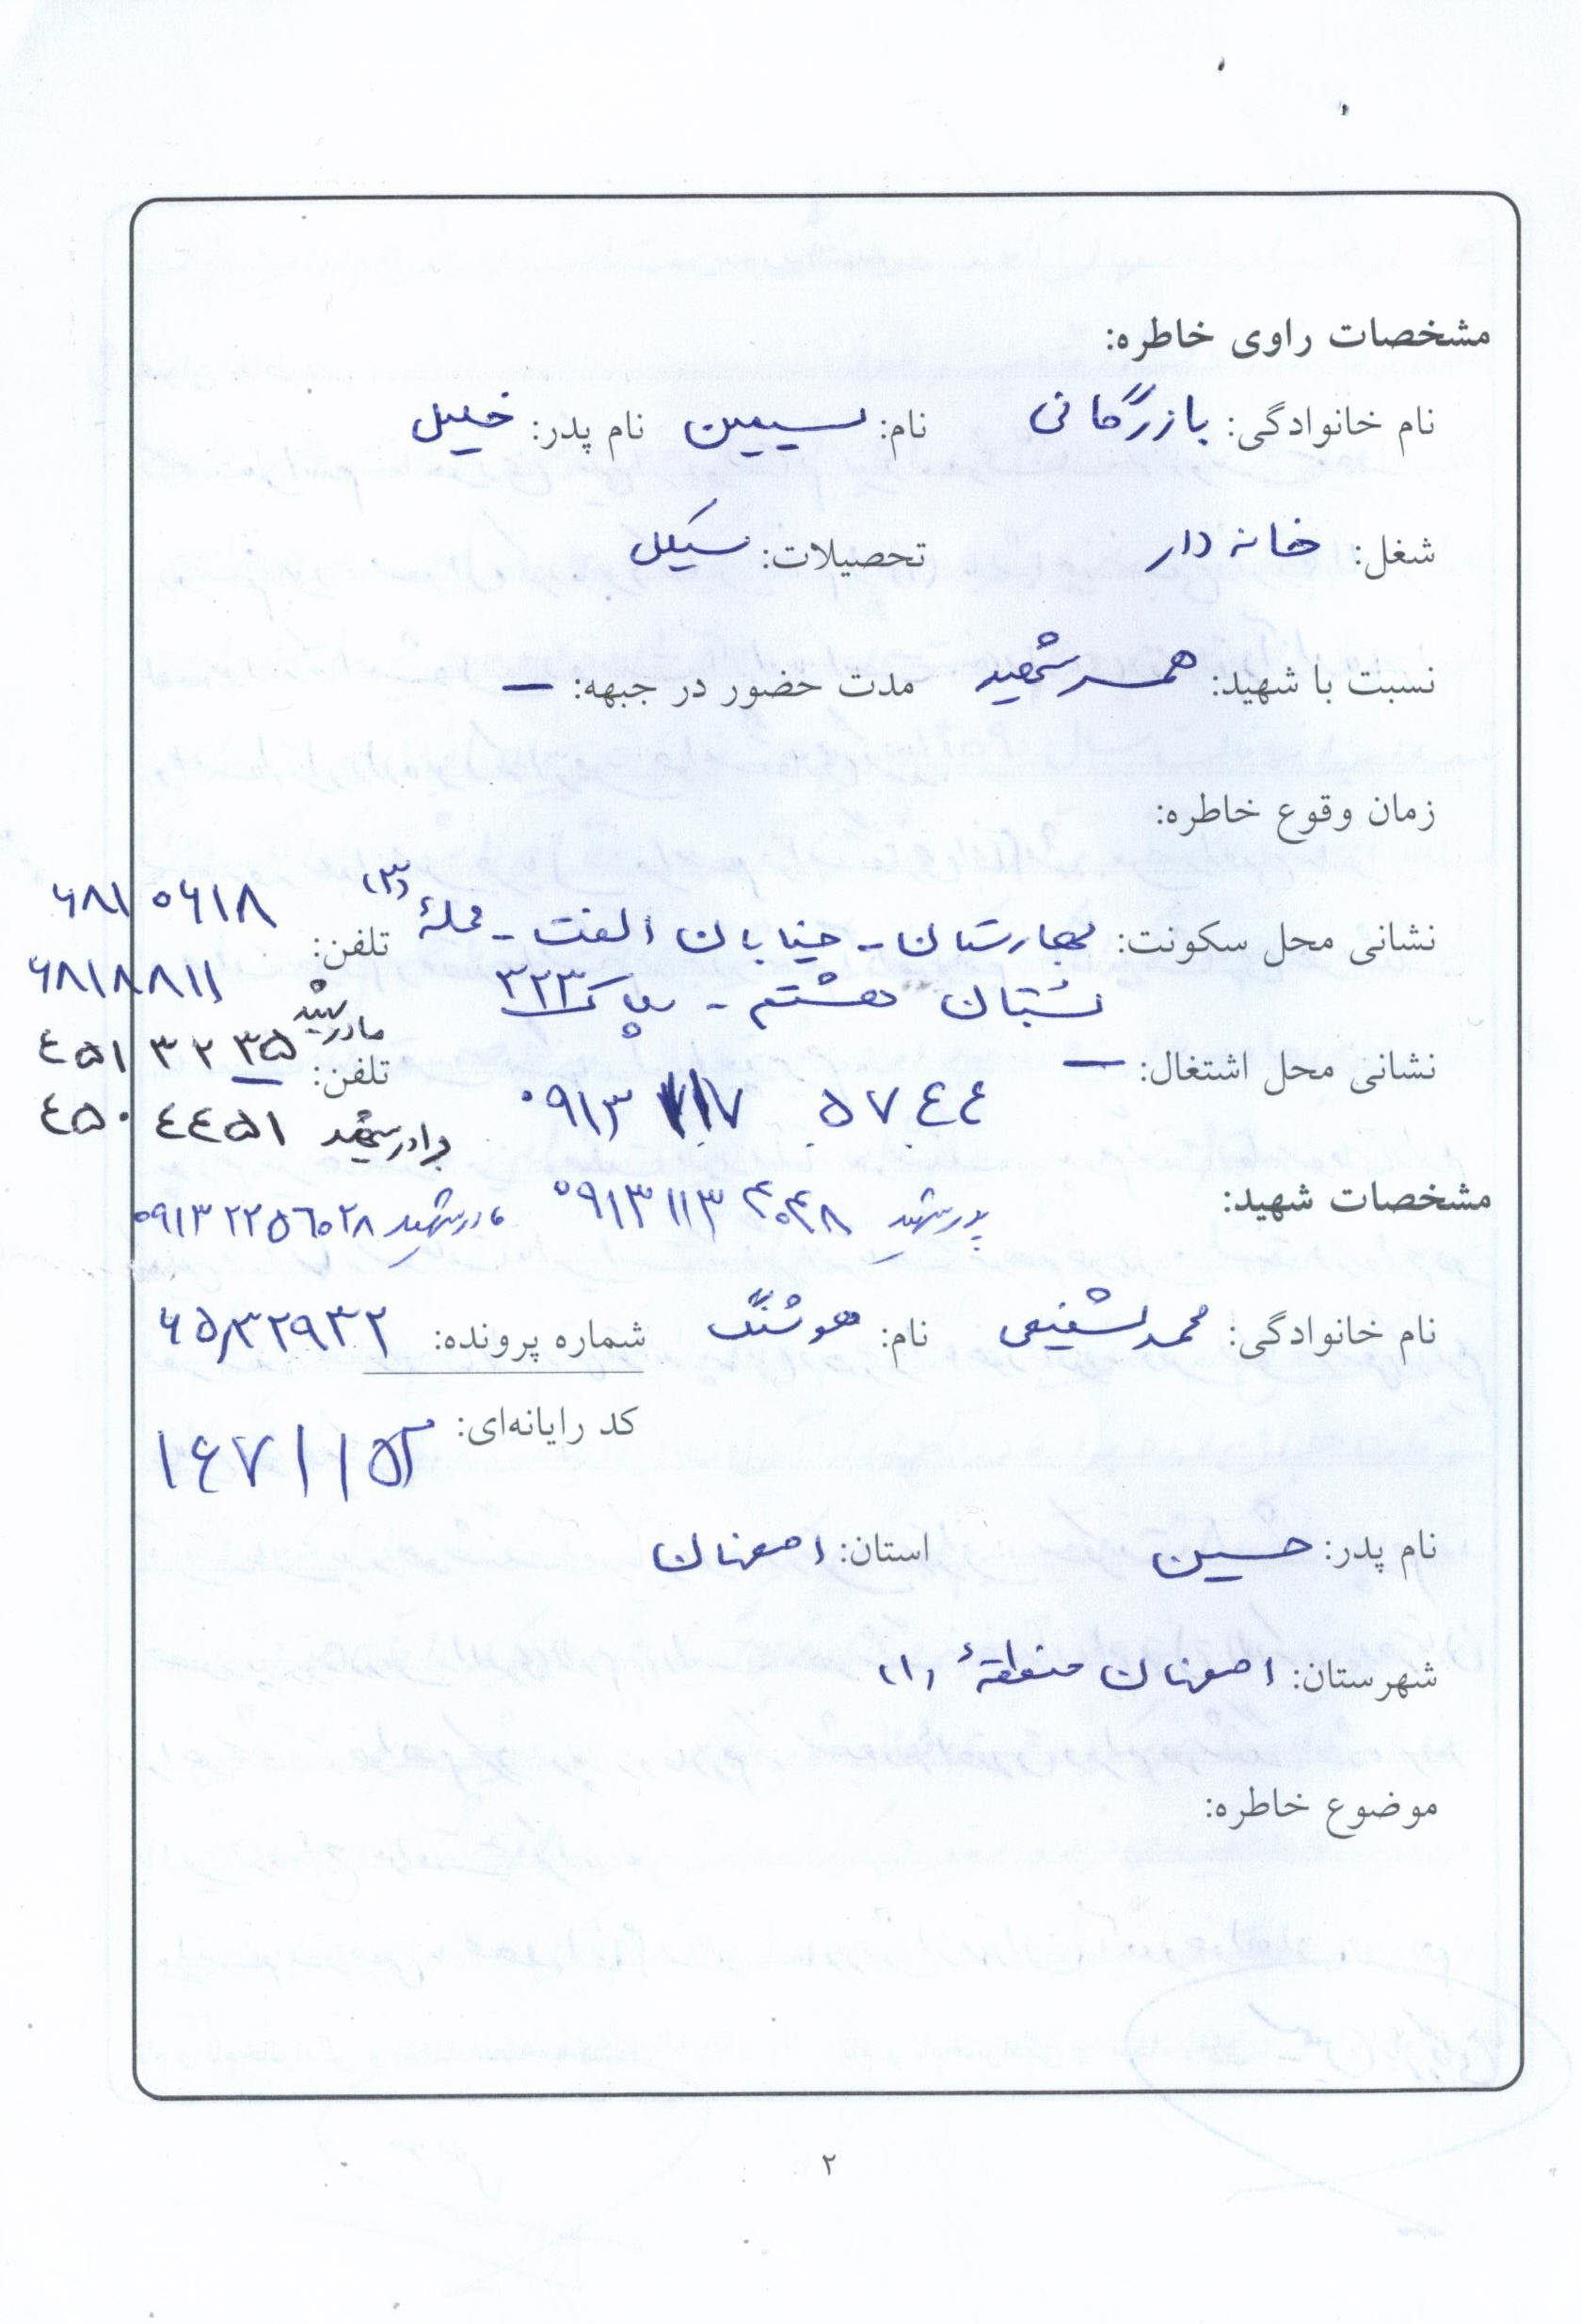 مشخصات راوی خاطره:
نام خانوادگی: بازرگانی نام: سیمین نام پدر: خلیل
شغل: خانه دار تحصیلات: سیکل
نسبت با شهید: همسر شهید مدت حضور در جبهه: —
زمان وقوع خاطره:
نشانی محل سکونت: بهارستان - خیابان الفت - محلهٔ (۳) تلفن: ۶۸۱۰۶۱۸
نشتبان هشتم - پلاک ۳۲۳ ۶۸۱۸۸۱۱
مادر شهید ۴۵۱۳۲۳۵
نشانی محل اشتغال: — تلفن:
۰۹۱۳ ۷۱۷ ۵۷۴۴
برادر شهید ۴۵۰۴۴۵۱
مشخصات شهید:
پدر شهید ۰۹۱۳۱۱۳۴۰۴۸ مادر شهید ۰۹۱۳۲۲۵۶۰۲۸
نام خانوادگی: محمد شفیعی نام: هوشنگ شماره پرونده: ۶۵/۳۲۹۳۲
کد رایانه‌ای:
نام پدر: حسین استان: اصفهان
شهرستان: اصفهان منطقهٔ (۱)
موضوع خاطره:
۲